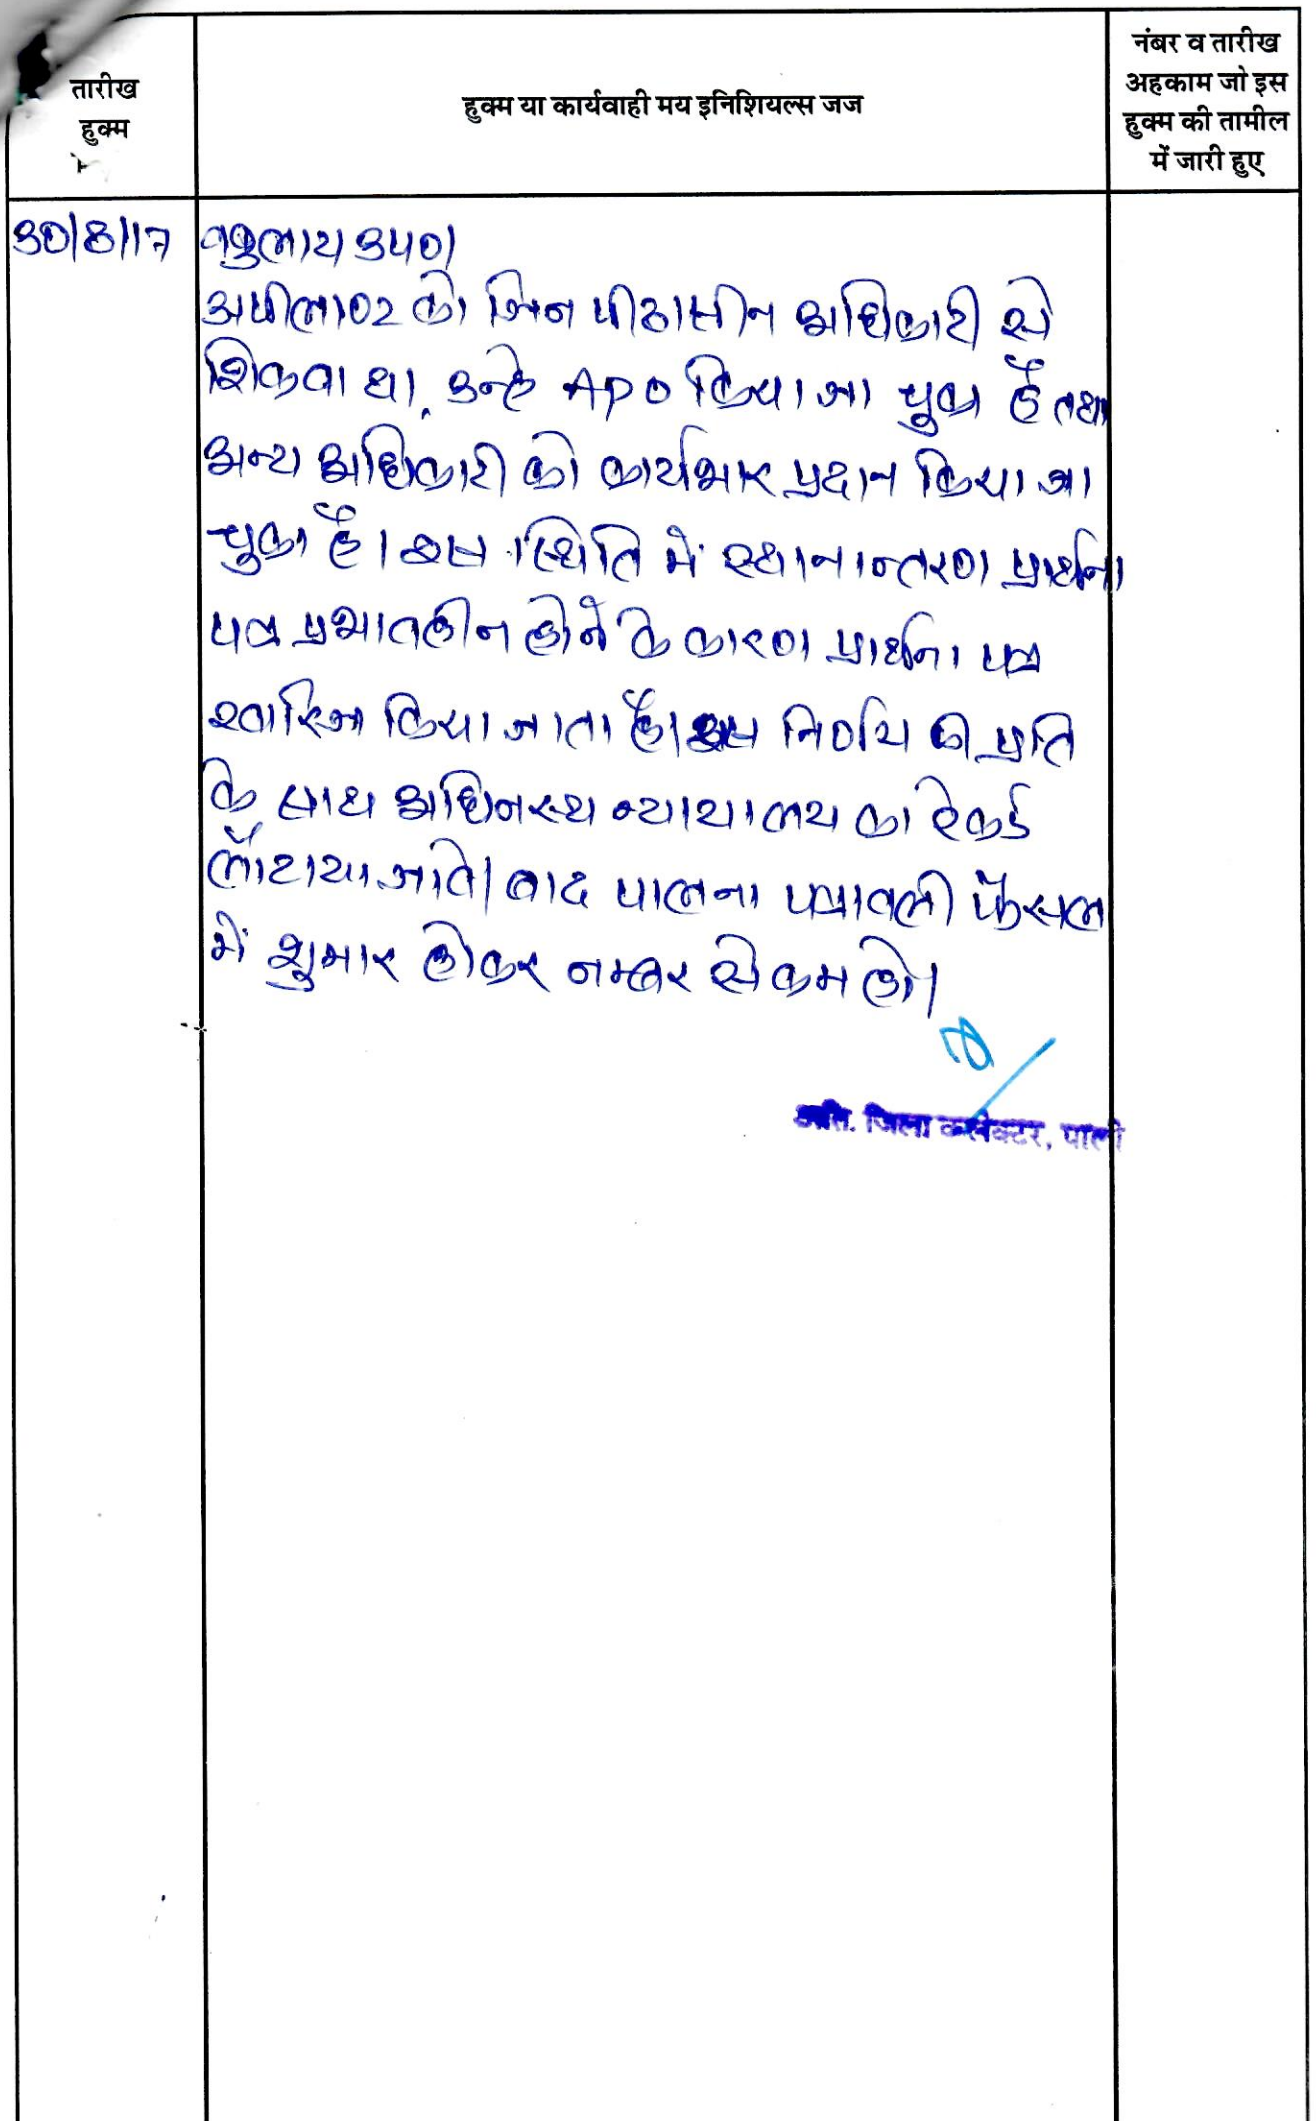 तारीख
हुक्म
हुक्म या कार्यवाही मय इनिशियल्स जज
नंबर व तारीख
अहकाम जो इस
हुक्म की तामील
में जारी हुए
30/8/17
वकुलाय उप0।
अपीलाण्ट को जिन पीठासीन अधिकारी से
शिकवा था, उन्हे APO किया जा चुका है तथा
अन्य अधिकारी को कार्यभार प्रदान किया जा
चुका है। इस स्थिति में स्थानान्तरण प्रार्थना
पत्र प्रभावहीन होने के कारण प्रार्थना पत्र
खारिज किया जाता है। इस निर्णय की प्रति
के साथ अधिनस्थ न्यायालय का रेकर्ड
लौटाया जावे। बाद पालना पत्रावली फैसल
में शुमार होकर नम्बर से कम हो।
अति. जिला कलेक्टर, पाली